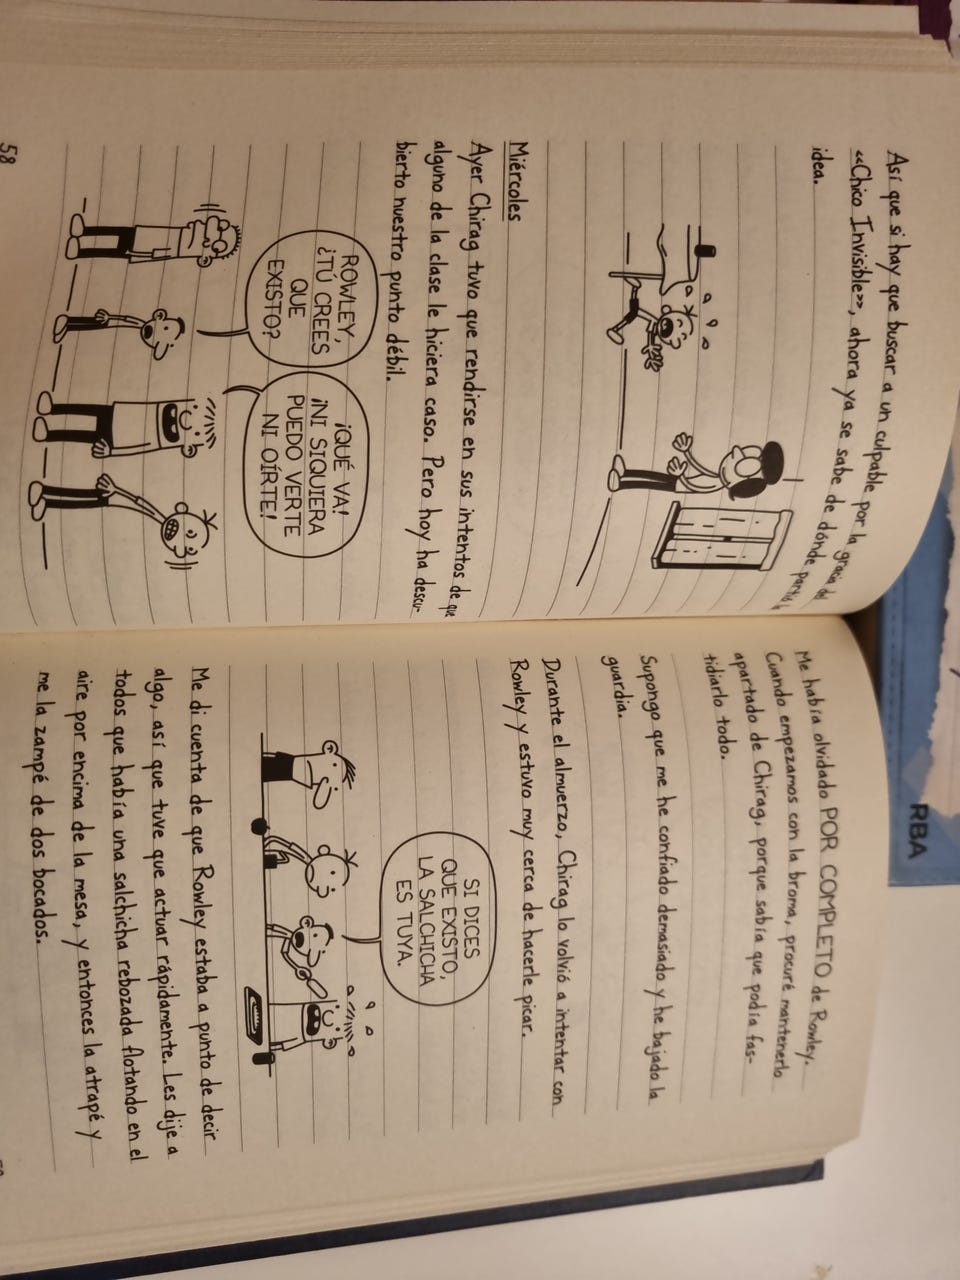 Así que si hay que buscar a un culpable por la gracia del
«Chico Invisible», ahora ya se sabe de dónde partió la
idea.
Miércoles
Ayer Chirag tuvo que rendirse en sus intentos de que
alguno de la clase le hiciera caso. Pero hoy ha descu-
bierto nuestro punto débil.
ROWLEY,
¿TÚ CREES
QUE
EXISTO?
¡QUÉ VA!
¡NI SIQUIERA
PUEDO VERTE
NI OÍRTE!
58
Me había olvidado POR COMPLETO de Rowley.
Cuando empezamos con la broma, procuré mantenerlo
apartado de Chirag, porque sabía que podía fas-
tidiarlo todo.
Supongo que me he confiado demasiado y he bajado la
guardia.
Durante el almuerzo, Chirag lo volvió a intentar con
Rowley y estuvo muy cerca de hacerle picar.
SI DICES
QUE EXISTO,
LA SALCHICHA
ES TUYA.
Me di cuenta de que Rowley estaba a punto de decir
algo, así que tuve que actuar rápidamente. Les dije a
todos que había una salchicha rebozada flotando en el
aire por encima de la mesa, y entonces la atrapé y
me la zampé de dos bocados.
RBA